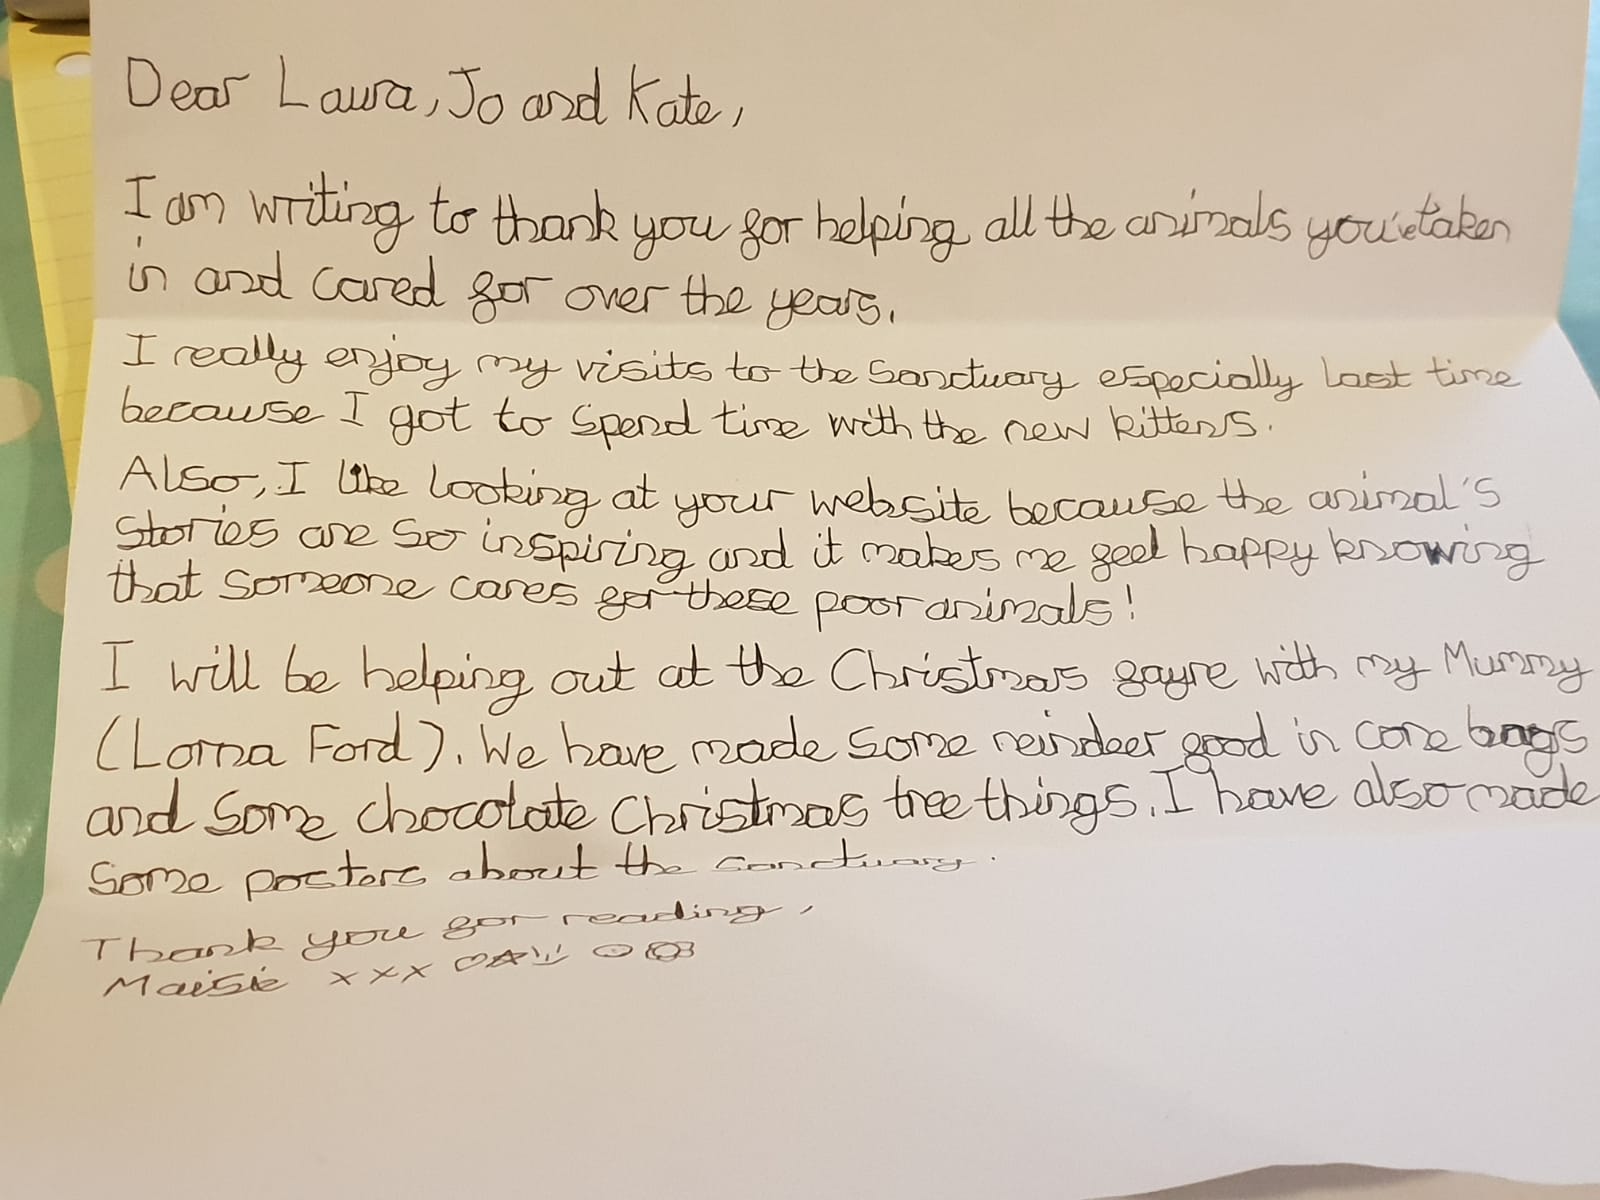 Dear Laura, Jo and Kate,
I am writing to thank you for helping all the animals you've taken
in and cared for over the years.
I really enjoy my visits to the Sanctuary especially last time
because I got to spend time with the new kittens.
Also, I like looking at your website because the animal's
stories are so inspiring and it makes me feel happy knowing
that someone cares for these poor animals!
I will be helping out at the Christmas fayre with my Mummy
(Lorna Ford). We have made some reindeer food in cone bags
and some chocolate Christmas tree things. I have also made
some posters about the sanctuary.
Thank you for reading,
Maisie xxx